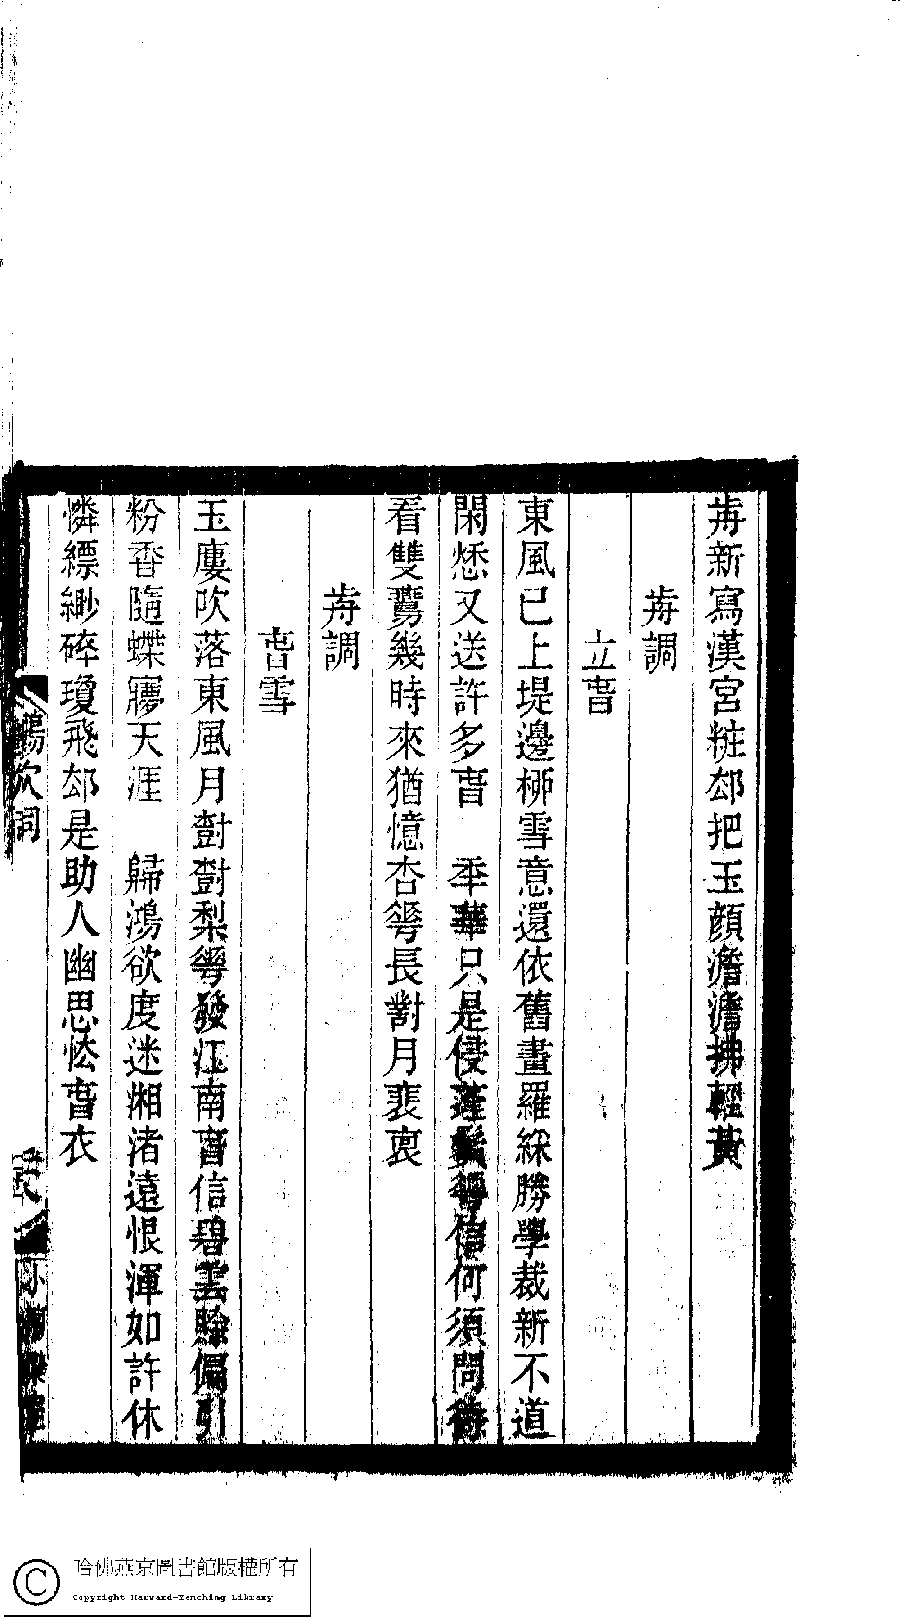 歬新寫漢宮粧郄把玉顔澹澹拂輕黃
歬調
立萅
東風已上堤邊栁雪意還依舊畫羅綵勝學裁新不道
閑愁又送許多萅　秊華只是侵蓬鬢蕚信何須問待
看雙鷰幾時來猶憶杏蕚長對月裵裒
歬調
萅雪
玉廔吹落東風月對對梨蕚發江南萅信碧雲賖偏引
粉香隨蝶寱天涯　歸鴻欲度迷湘渚遠恨渾如許休
憐縹緲碎瓊飛郄是助人幽思怯萅衣
Copyright Harvard-Yenching Library
哈佛燕京圖書館版權所有